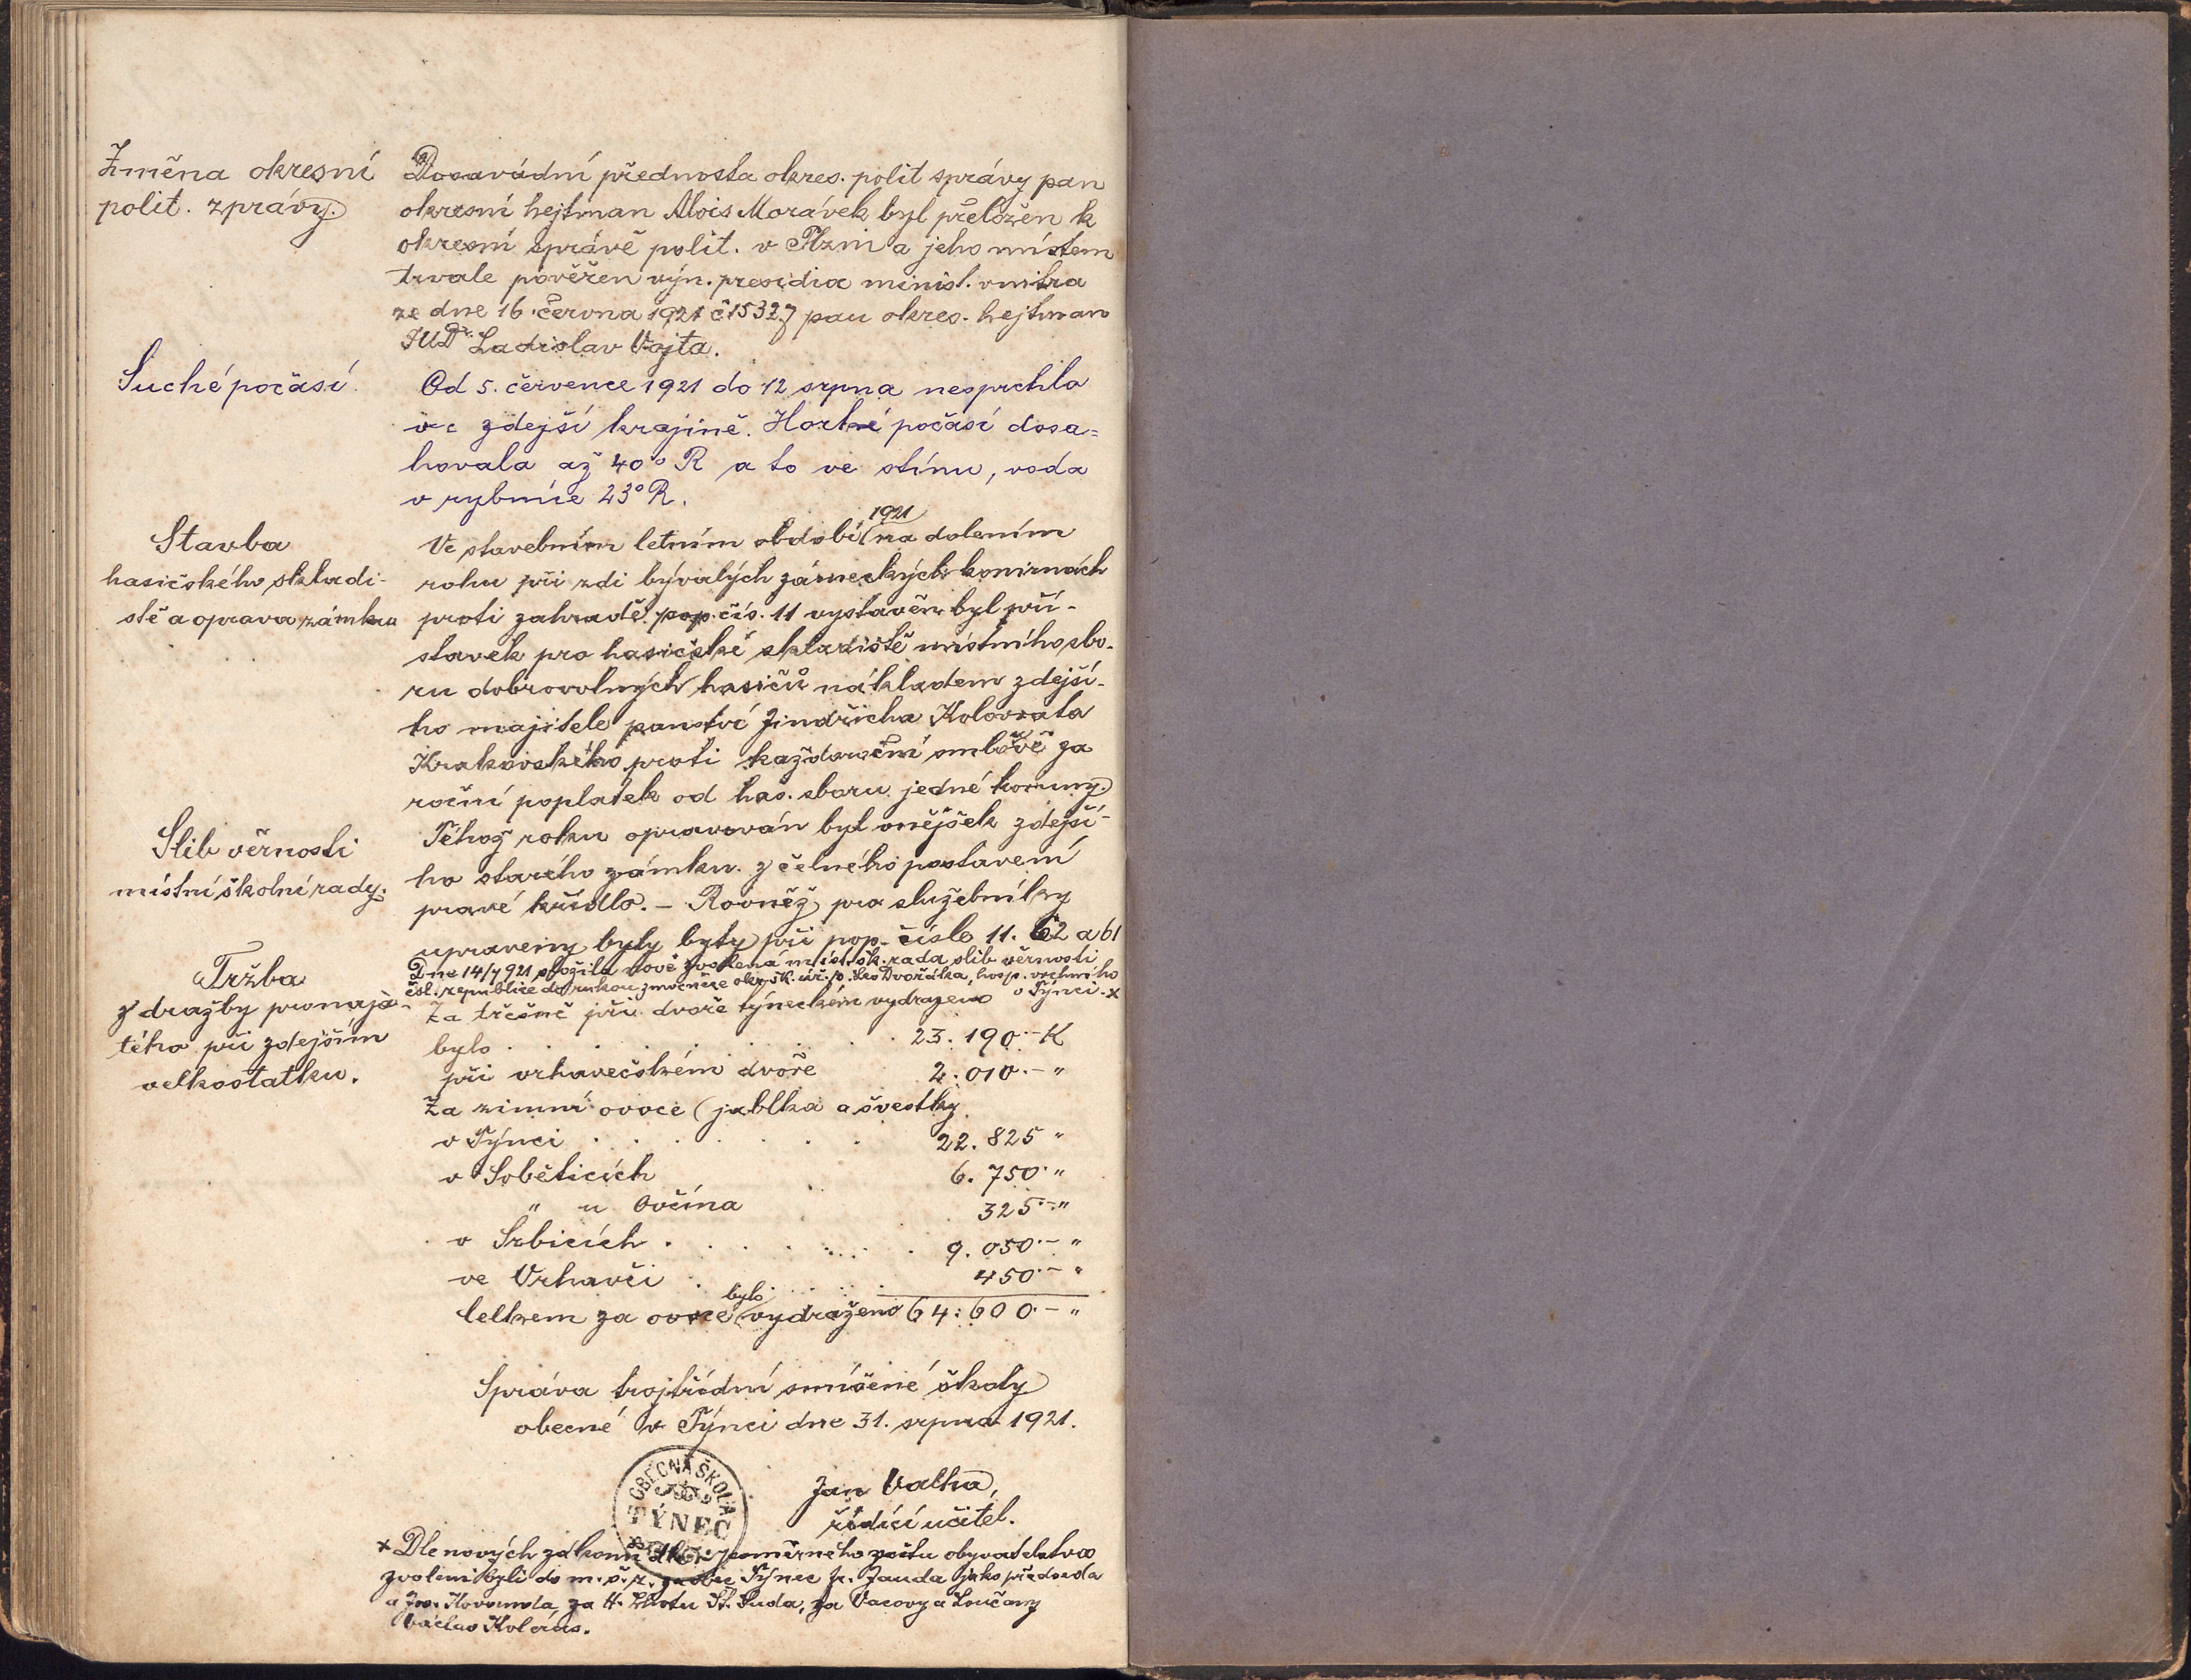 Změna okresní
polit. zprávy.
Dosavádní přednosta okres. polit správy pan
okresní hejtman Alois Morávek byl přeložen k
okresní správě polit. v Plzni a jeho místem
trvale pověřen výn. presidia minist. vnitra
ze dne 16. června 1921 č 15327 pan okres. hejtman
JUDr. Ladislav Vojta.
Suché počasí.
Od 5. července 1921 do 12 srpna nesprchlo
ve zdejší krajině. Horké počasí dosa=
hovala až 40° R a to ve stínu, voda
v rybníce 23° R.
Stavba
hasičského skladi-
stě a oprava zámku
Ve stavebním letním období 1921 na dolením
rohu při zdi bývalých zámeckých konírnách
proti zahradě pop. čís. 11 vystavěn byl pří-
stavek pro hasičské skladiště místního sbo-
ru dobrovolných hasičů nákladem zdejší-
ho majitele panství Jindřicha Kolovrata
Krakovského proti každoroční smlově za
roční poplatek od has. sboru jedné koruny.
Téhož roku opravován byl vnějšek zdejší-
ho starého zámku z čelného postavení
pravé křídlo. – Rovněž pro služebníky
upraveny byly byty při pop. čísle 11. 62 a 61
Slib věrnosti
místní školní rady.
Dne 14/7 921 složila nově zvolená míst. šk. rada slib věrnosti
čsl. republice do rukou zmocněnce okr. šk. úř. p. Leo Dvořáka, hosp. vrchního
v Týnci. x
Tržba
z dražby pronaja-
tého při zdejším
velkostatku.
Za třešně při dvoře týneckém vydraženo
bylo . . . . . . . . . 23.190.– K
při vrhavečském dvoře 2.010.– "
Za zimní ovoce (jablka a švestky
v Týnci . . . . . . . 22.825 "
v Soběticích 6.750 "
" u Ovčína 325.– "
v Srbicích . . . . . . 9.050.– "
ve Vrhavči . . . . . 450.– "
Celkem za ovoce bylo vydraženo 64.600.– "
Správa trojtřídní smíšené školy
obecné v Týnci dne 31. srpna 1921.
OBECNÁ ŠKOLA
TÝNEC
Jan Valha,
řídící učitel.
x Dle nových zákonů dle poměrného počtu obyvatelstva
zvoleni byli do m. š. r. za obec Týnec Fr. Jauda jako předseda
a Jos. Kovanda, za H. Lhotu St. Suda, za Vacovy a Loučany
Václav Kolerus.